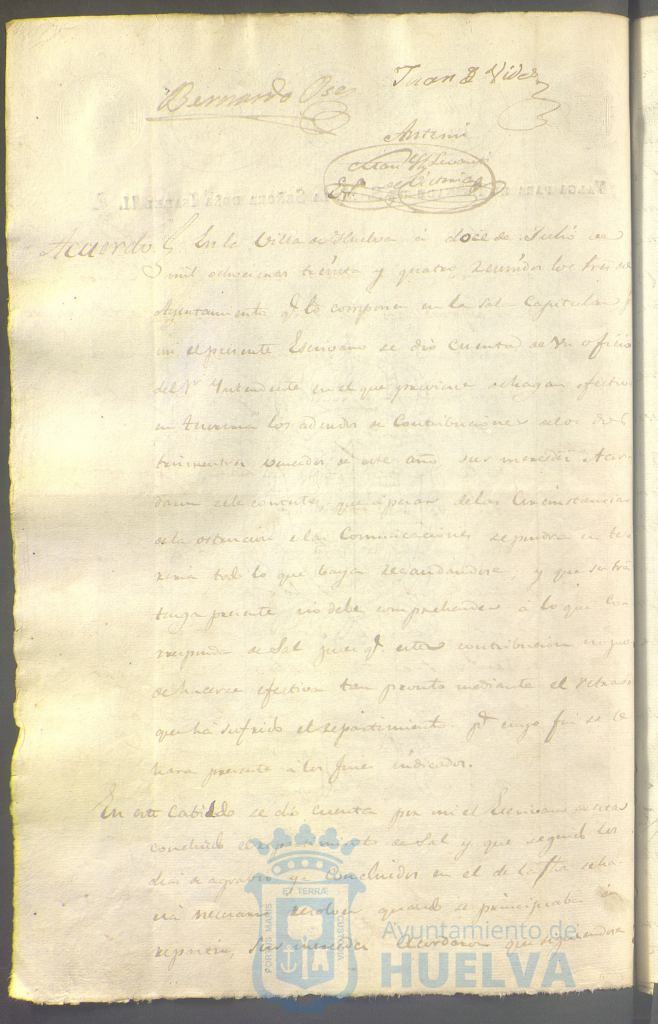 Juan B Vides
Bernardo Ose
Antemi
Acuerdo En la Villa de Huelva á doce de Julio de
mil ochocientos treinta y quatro, reunidos los Sres de
Ayuntamiento q. lo componen en la Sala Capitular
mi el presente Escribano se dió cuenta de un oficio
del Sr Yntendente en el que previene se hagan efectivos
en Tesoreria los adeudos de Contribuciones de los dos
trimestres vencidos de este año sus mercedes Acor
daron se le conteste, que apesar de las Circunstancias
de la Comunicaciones se pondra en teso
reria todo lo que baya recaudandose y que
tenga presente no debe comprehender a lo que Co
rresponda de Sal pues q. esta contribucion no puede
de hacerse efectiva tan pronto mediante el retraso
que há sufrido el repartimiento pa. cuyo fin se le
hara presente á los fines indicados.
En este Cabildo se dió cuenta por mi el Escribano de estar
concluido el repartimiento de Sal y que segun los
dias de agravio ya concluidos en el de la fha
necesario resolver quando se principiaba
sus mercedes Acordaron que siguiendose
PORTUS MARIS ET TERRAE CUSTODIA
Ayuntamiento de
HUELVA